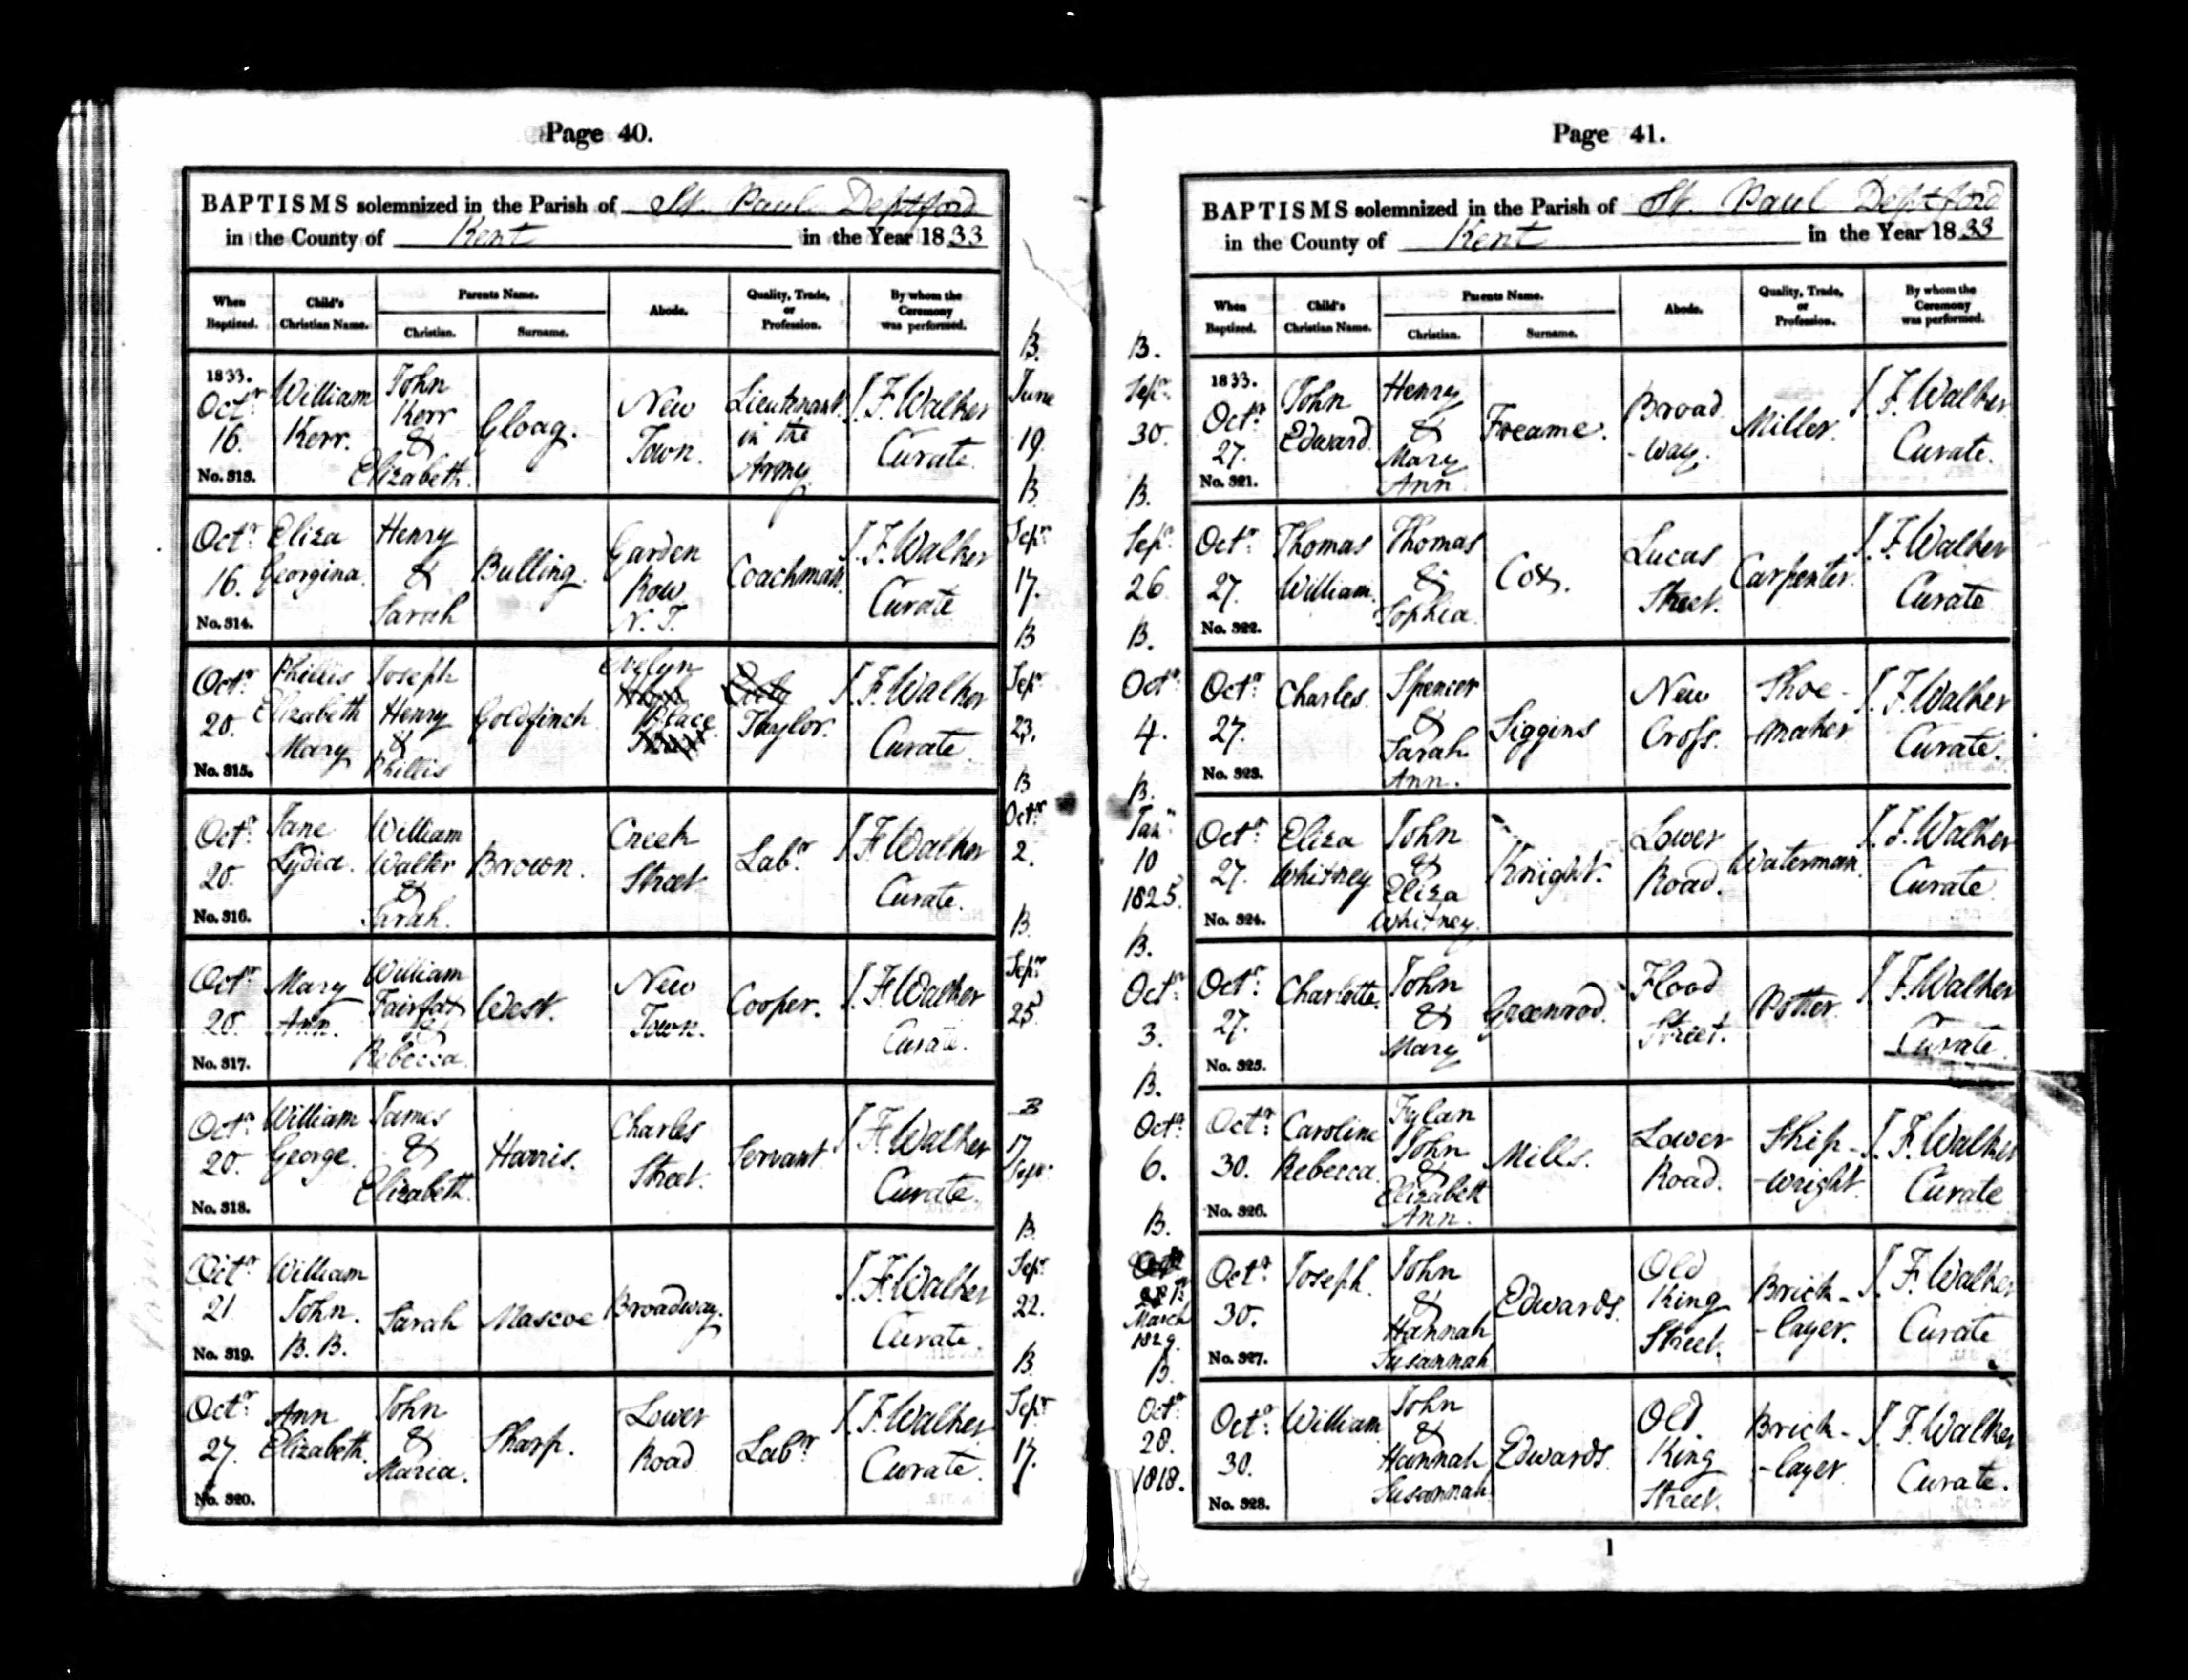 Page 40.
BAPTISMS solemnized in the Parish of St. Paul Deptford
in the County of Kent in the Year 1833
When Baptized.
Child's Christian Name.
Parents Name.
Christian.
Surname.
Abode.
Quality, Trade, or Profession.
By whom the Ceremony was performed.
1833.
Octr.
16.
No. 313.
William
Kerr.
John
Kerr
&
Elizabeth.
Gloag.
New
Town.
Lieutenant
in the
Army.
J. F. Walker
Curate.
B.
June
19.
Octr.
16.
No. 314.
Eliza
Georgina.
Henry
&
Sarah
Bulling.
Garden
Row
N. T.
Coachman.
J. F. Walker
Curate
B
Sepr.
17.
Octr
20.
No. 315.
Phillis
Elizabeth
Mary
Joseph
Henry
&
Phillis
Goldfinch
Evelyn
Place
Taylor.
J. F. Walker
Curate.
B
Sepr
23.
Octr.
20.
No. 316.
Jane
Lydia.
William
Walter
&
Sarah.
Brown.
Creek
Street
Labr.
J. F. Walker
Curate.
B
Octr.
2.
Octr
20.
No. 317.
Mary
Ann.
William
Fairfax
&
Rebecca.
West.
New
Town.
Cooper.
J. F. Walker
Curate.
B
Sepr.
25.
Octr.
20.
No. 318.
William
George.
James
&
Elizabeth.
Harris.
Charles
Street.
Servant.
J. F. Walker
Curate.
B
17
Sepr.
Octr.
21
No. 319.
William
John.
B. B.
Sarah
Mascoe
Broadway.
J. F. Walker
Curate.
B.
Sepr.
22.
Octr.
27.
No. 320.
Ann
Elizabeth.
John
&
Maria.
Sharp.
Lower
Road
Labr.
J. F. Walker
Curate.
B.
Sepr
17.
Page 41.
BAPTISMS solemnized in the Parish of St. Paul Deptford
in the County of Kent in the Year 1833
When Baptized.
Child's Christian Name.
Parents Name.
Christian.
Surname.
Abode.
Quality, Trade, or Profession.
By whom the Ceremony was performed.
B.
Sepr.
30.
1833.
Octr.
27.
No. 321.
John
Edward.
Henry
&
Mary
Ann.
Freame.
Broad
-way.
Miller.
J. F. Walker
Curate.
B.
Sepr.
26.
Octr.
27.
No. 322.
Thomas
William.
Thomas
&
Sophia.
Cox.
Lucas
Street.
Carpenter.
J. F. Walker
Curate.
B.
Octr.
4.
Octr.
27.
No. 323.
Charles.
Spencer
&
Sarah
Ann.
Siggins
New
Cross.
Shoe-
-maker
J. F. Walker
Curate.
B.
Jany.
10
1825.
Octr.
27.
No. 324.
Eliza
Whitney
John
&
Eliza
Whitney.
Knight.
Lower
Road.
Waterman.
J. F. Walker
Curate.
B.
Octr.
3.
Octr.
27.
No. 325.
Charlotte.
John
&
Mary
Greenrod.
Flood
Street.
Potter.
J. F. Walker
Curate.
B.
Octr.
6.
Octr.
30.
No. 326.
Caroline
Rebecca.
John
&
Elizabeth
Ann.
Mills.
Lower
Road.
Ship-
-wright.
J. F. Walker
Curate
B.
March
1829.
Octr.
30.
No. 327.
Joseph.
John
&
Hannah
Susannah
Edwards.
Old
King
Street.
Brick-
-layer.
J. F. Walker
Curate
B.
Octr.
28.
1818.
Octr.
30.
No. 328.
William
John
&
Hannah
Susannah.
Edwards.
Old
King
Street.
Brick-
-layer.
J. F. Walker
Curate.
1